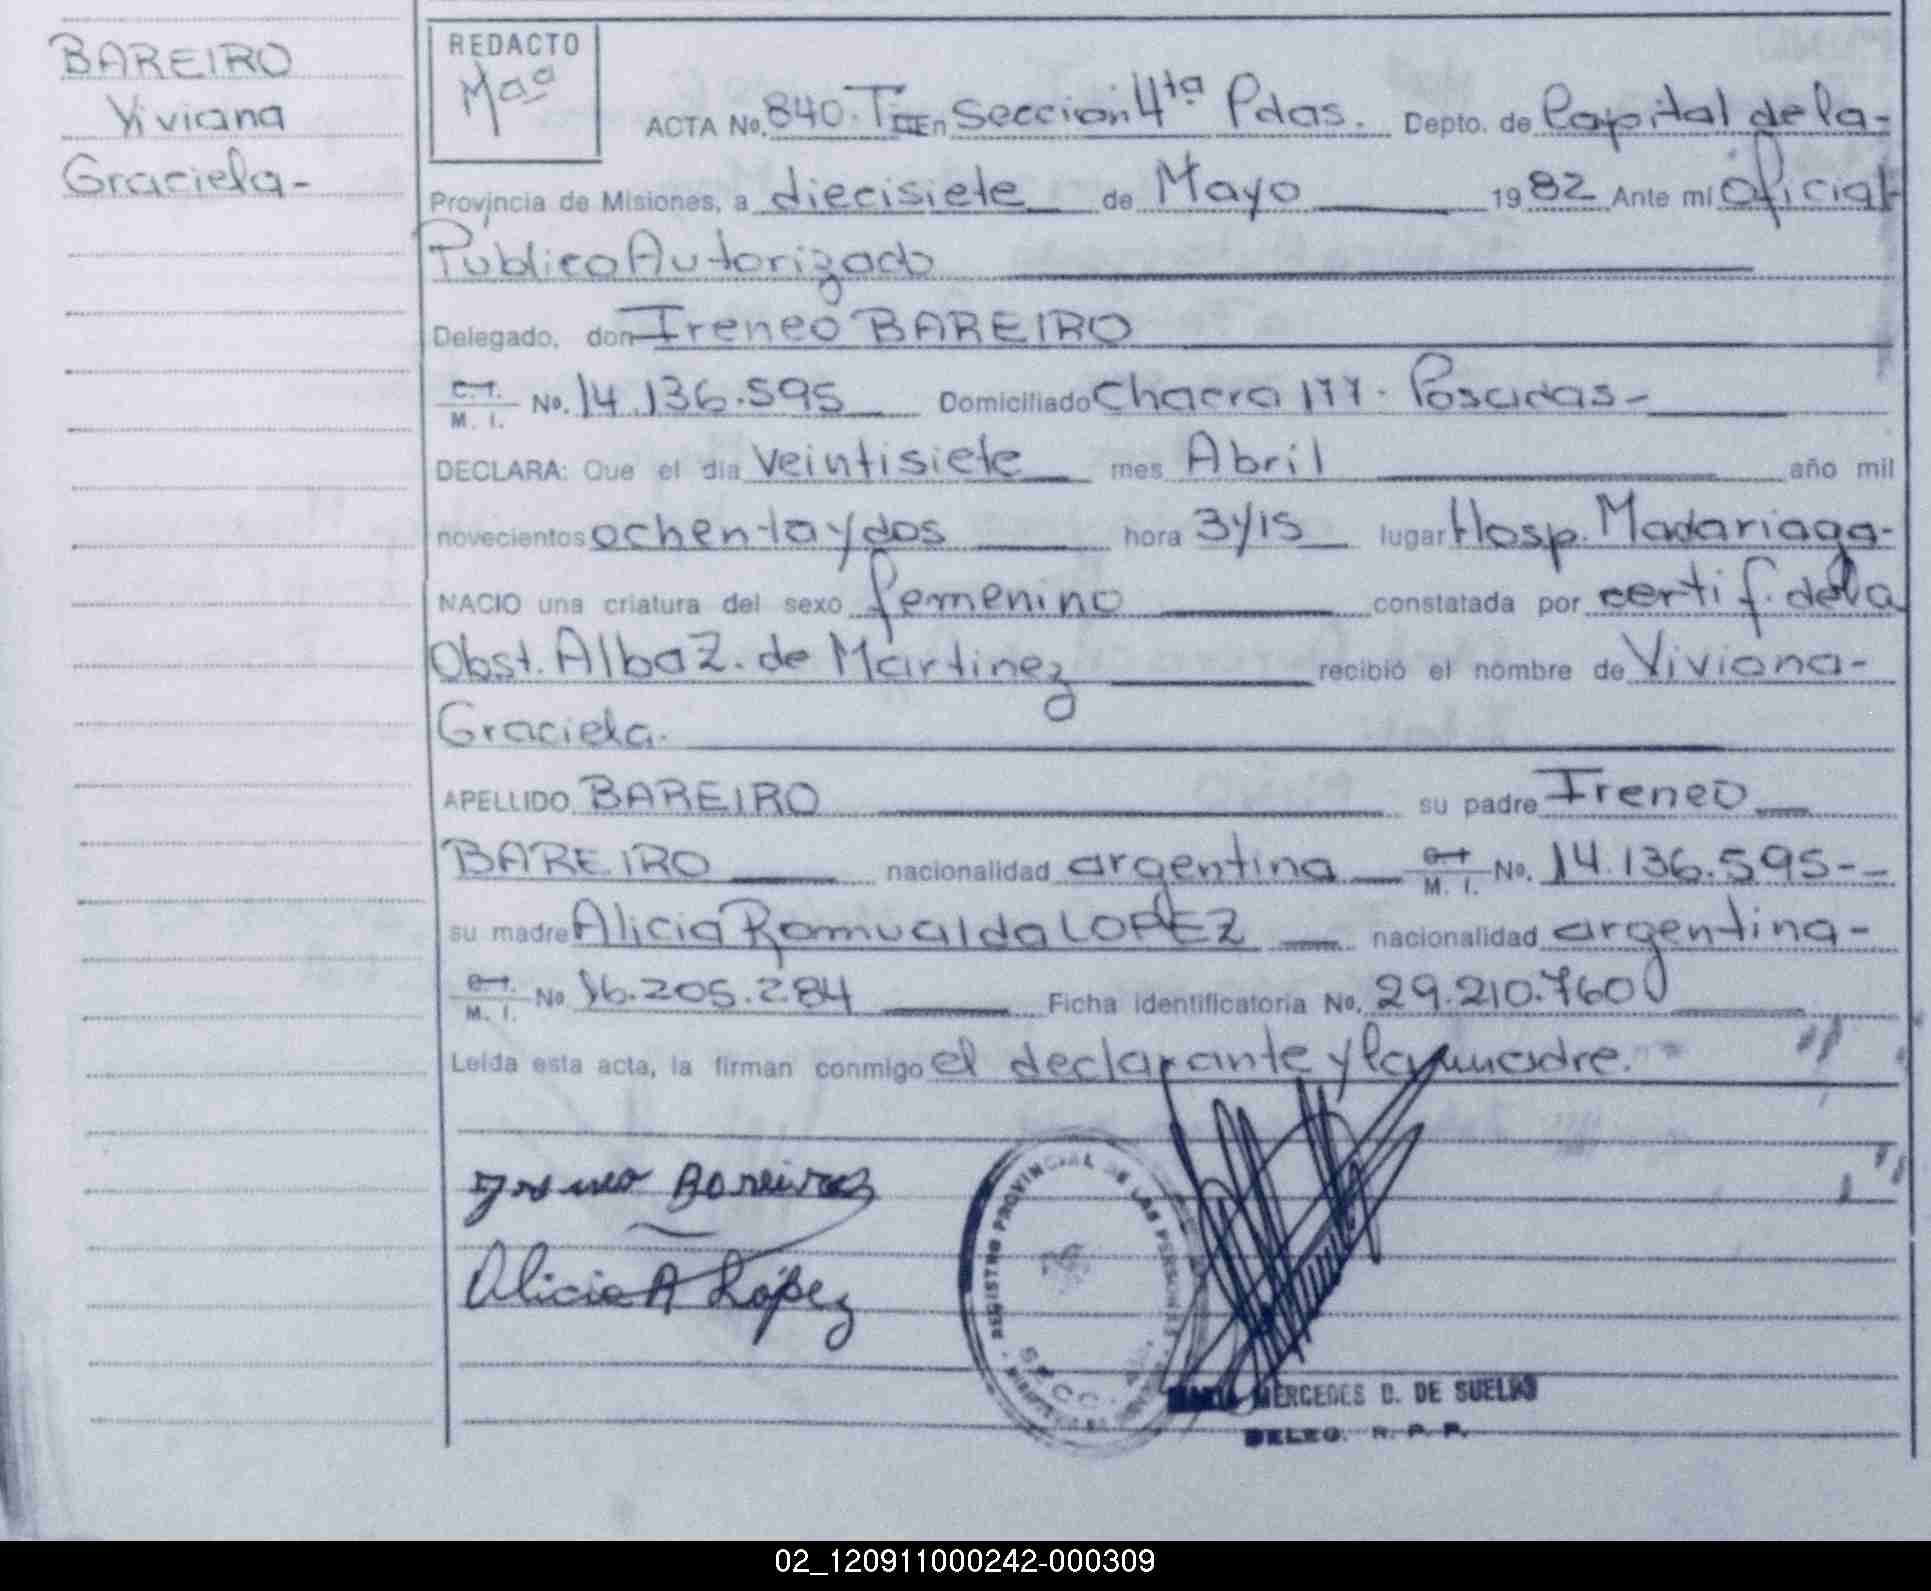 BAREIRO
Viviana
Graciela-
REDACTO
Maª
ACTA No. 840. T III En Sección 4ta Pdas. Depto. de Capital de la-
Provincia de Misiones, a diecisiete de Mayo 1982 Ante mí Oficial
Público Autorizado
Delegado, don Ireneo BAREIRO
C.I. M. I. No. 14.136.595 Domiciliado Chacra 177. Posadas-
DECLARA: Que el día veintisiete mes Abril año mil
novecientos ochenta y dos hora 3 y 15 lugar Hosp. Madariaga-
NACIO una criatura del sexo femenino constatada por certif. de la
Obst. Alba Z. de Martinez recibió el nombre de Viviana-
Graciela.
APELLIDO BAREIRO su padre Ireneo
BAREIRO nacionalidad argentina C.I. M. I. No. 14.136.595--
su madre Alicia Romualda LOPEZ nacionalidad argentina-
C.I. M. I. No 16.205.284 Ficha identificatoria No. 29.210.760
Leída esta acta, la firman conmigo el declarante y la madre.
Ireneo Bareiro
Alicia A López
REGISTRO PROVINCIAL DE LAS PERSONAS
SECC.
MARIA MERCEDES D. DE SUELDO
DELEG. R. P. P.
02_120911000242-000309